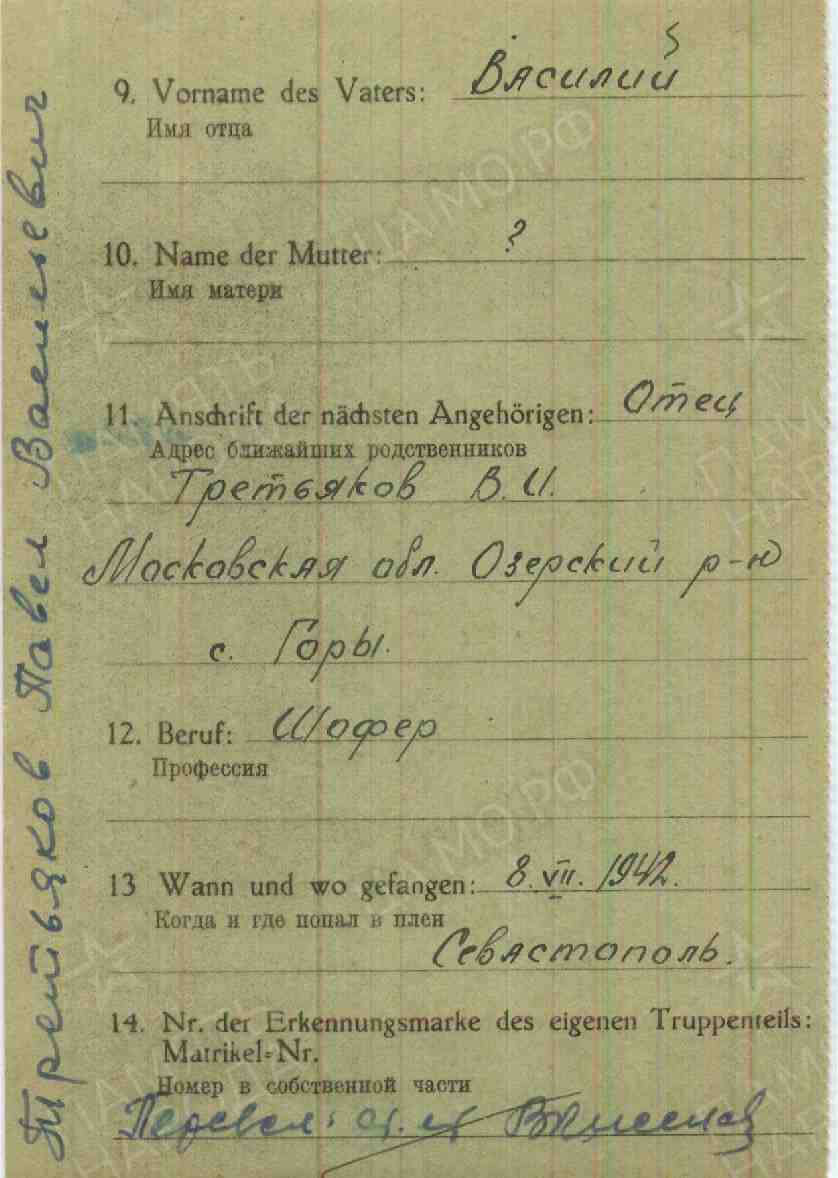 9. Vorname des Vaters: Василий
Имя отца
10. Name der Mutter: ?
Имя матери
11. Anschrift der nächsten Angehörigen: Отец
Адрес ближайших родственников
Третьяков В. И.
Московская обл. Озерский р-н
с. Горы.
12. Beruf: Шофер
Профессия
13 Wann und wo gefangen: 8. VII. 1942.
Когда и где попал в плен
Севастополь.
14. Nr. der Erkennungsmarke des eigenen Truppenteils:
Matrikel-Nr.
Номер в собственной части
Перевел:
Третьяков Павел Васильевич
ПАМЯТЬ
ЦАМО.РФ